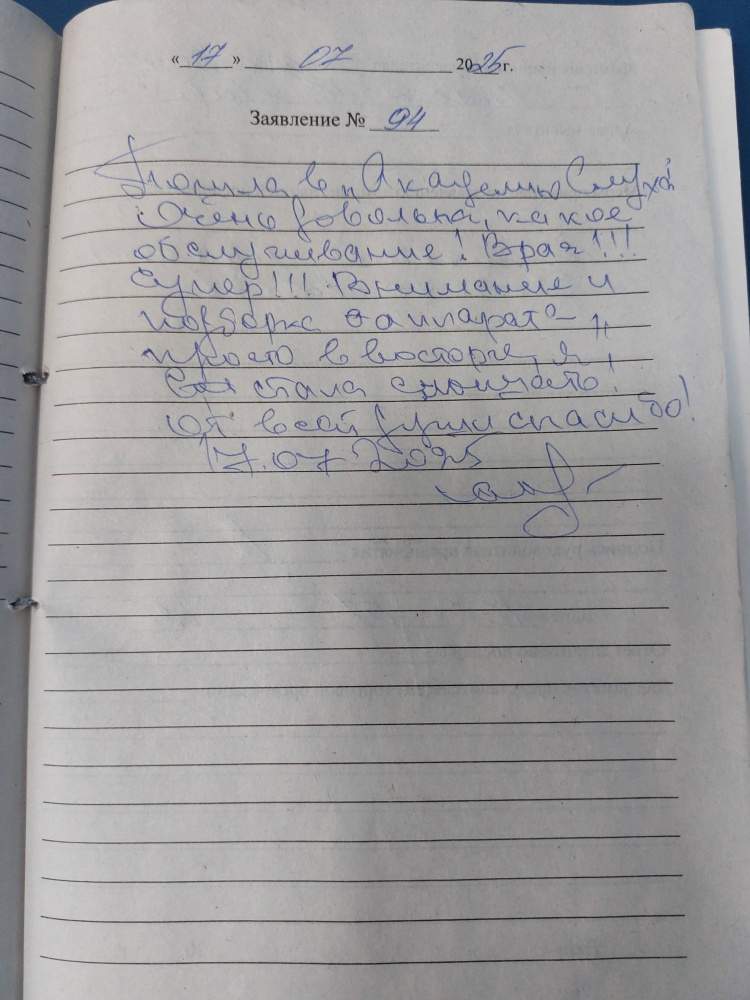 « 17 » 07 2025 г.
Заявление № 94
в „Академию Слуха"
Очень довольна, какое
обслуживание! Врач!!!
Супер!!! Внимание и
подборка аппарата
просто в восторге, я
стала слышать!
От всей души спасибо!
17.07.2025